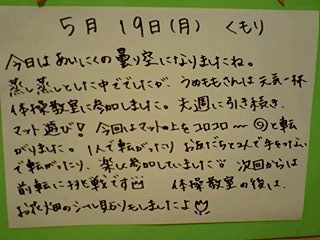 5月19日(月) くもり
今日はあいにくの曇り空になりましたね。
蒸し蒸しとした中でしたが、うめももさんは元気一杯
体操教室に参加しました。先週に引き続き、
マット遊び! 今回はマットの上をコロコロ〜と転
がりました。1人で転がったり お友だちと2人で手をつない
で転がったり、楽しく参加していました 次回からは
前転に挑戦です 体操教室の後は、
お花畑のシール貼りもしましたよ